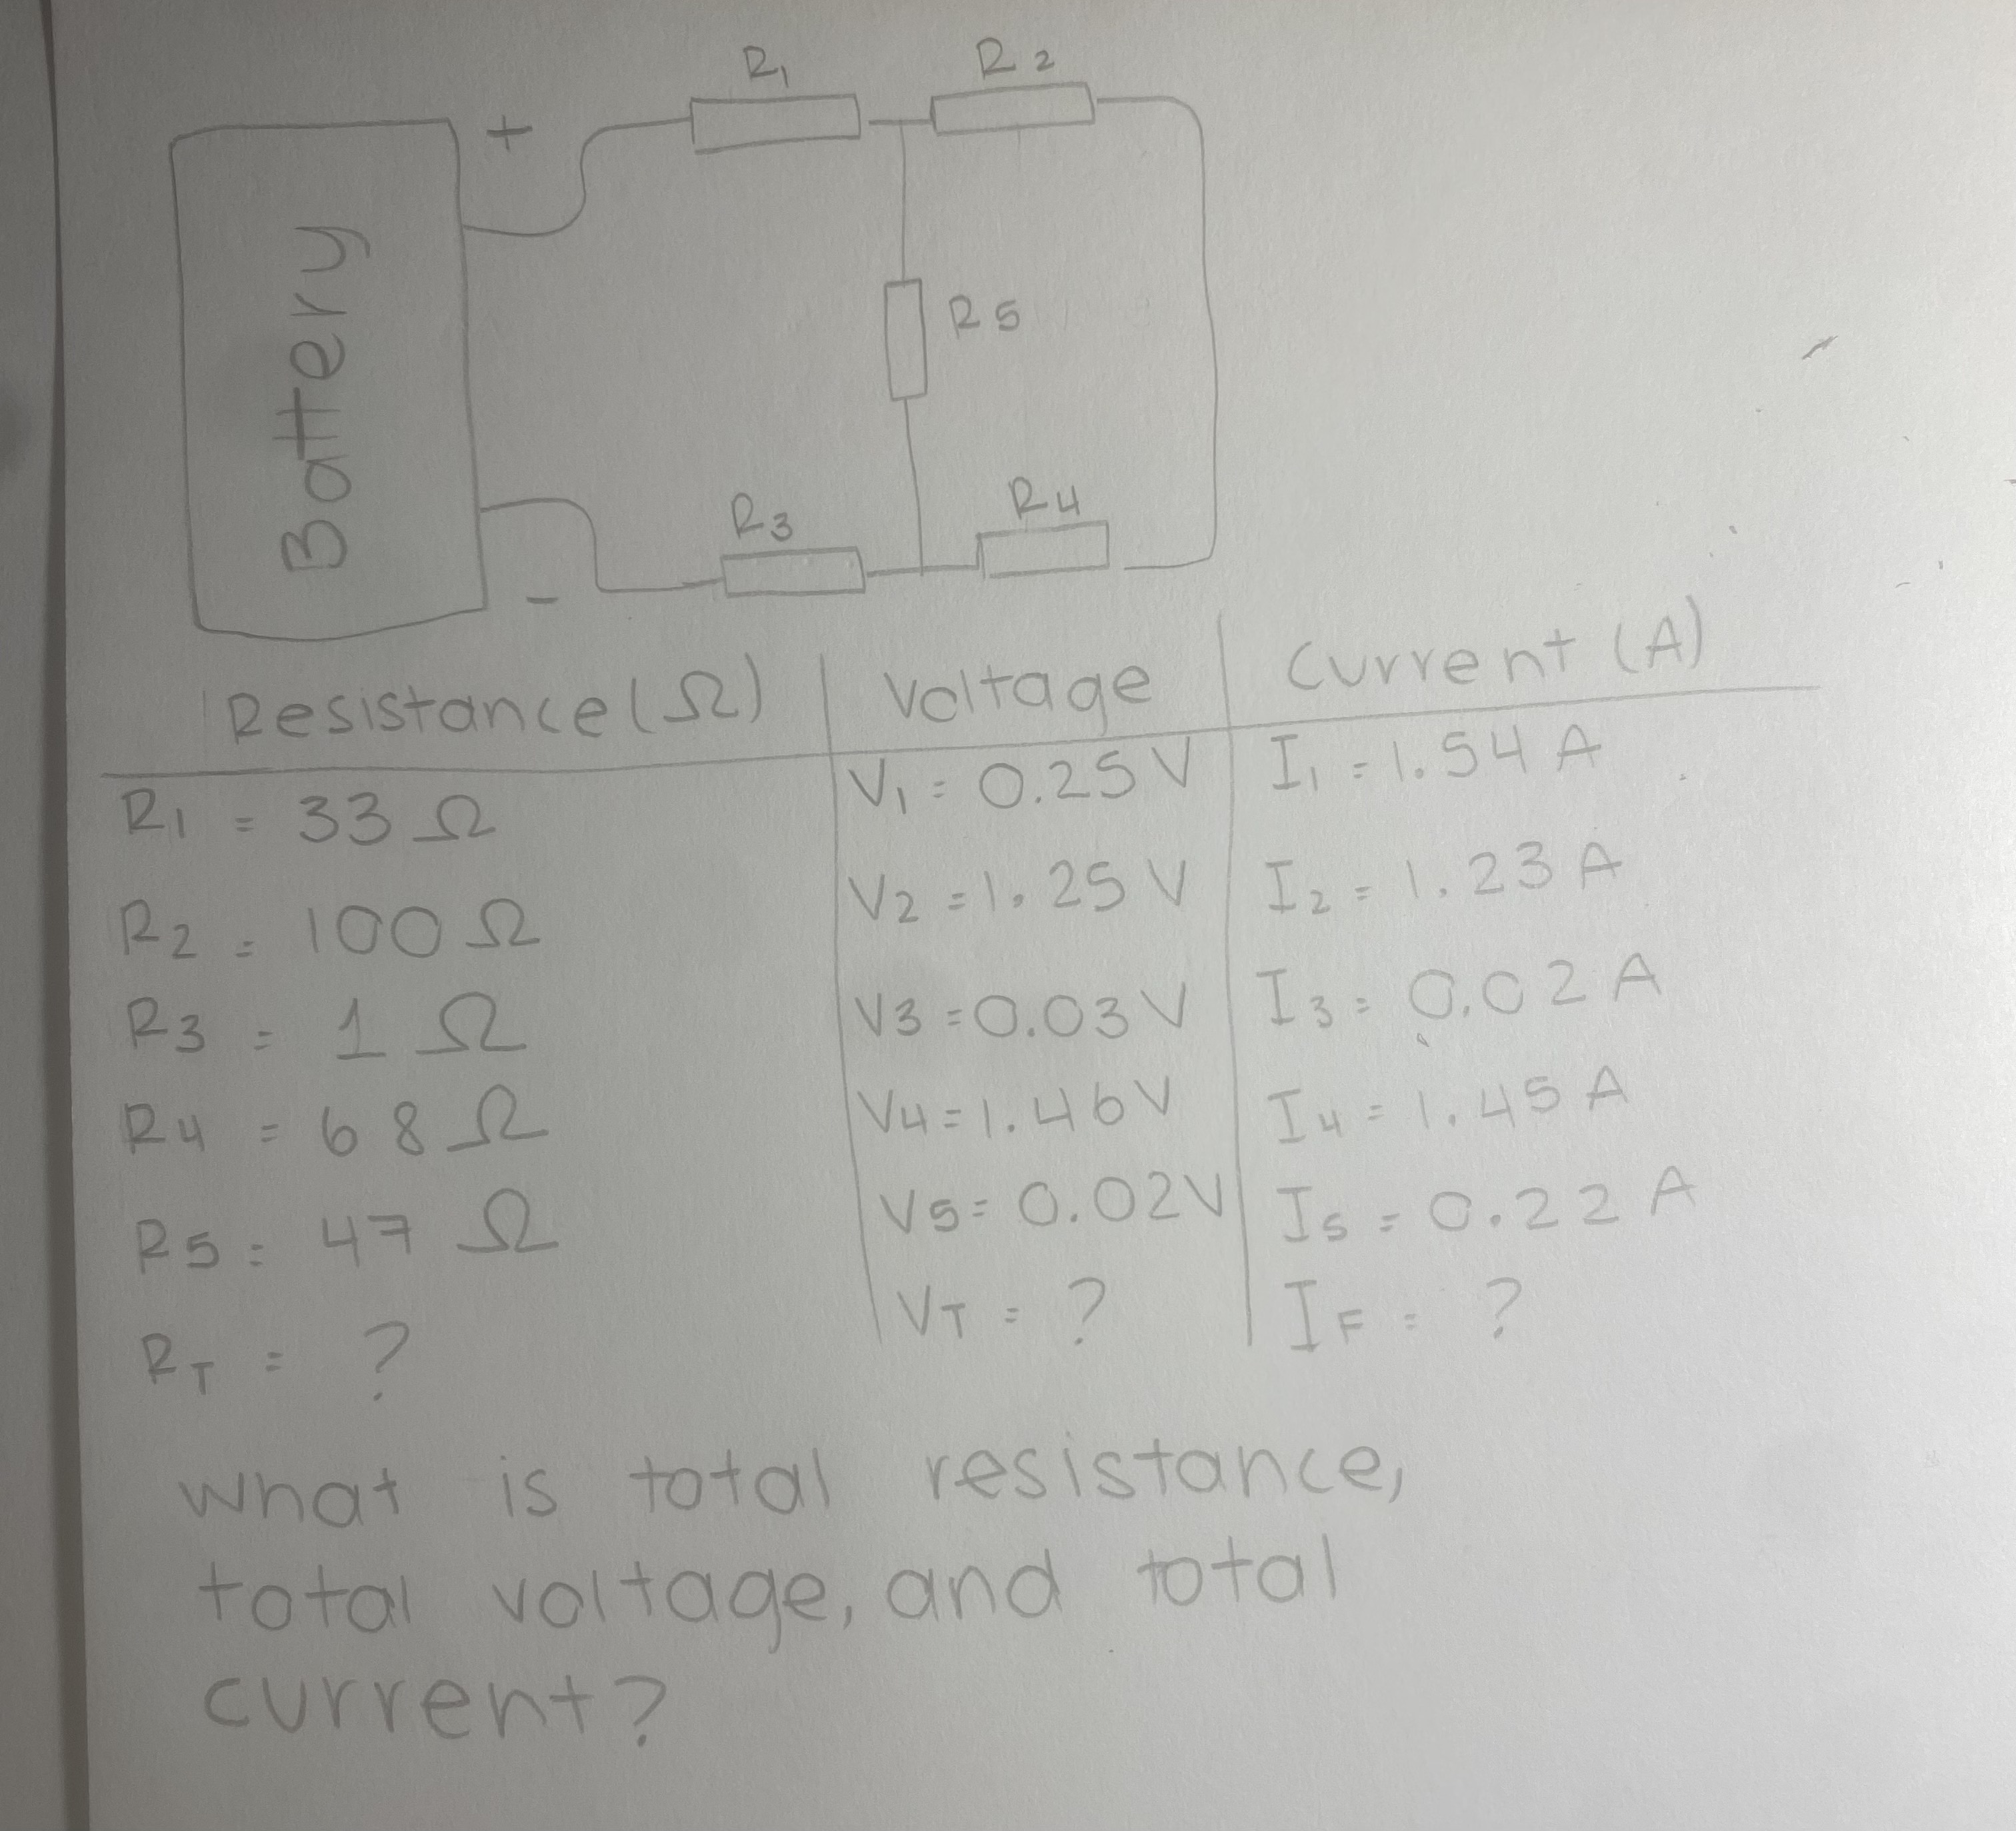 R1
R2
+
Battery
R5
R3
R4
-
Resistance (Ω) Voltage Current (A)
R1 = 33 Ω V1 = 0.25 V I1 = 1.54 A
R2 = 100 Ω V2 = 1.25 V I2 = 1.23 A
R3 = 1 Ω V3 = 0.03 V I3 = 0.02 A
R4 = 68 Ω V4 = 1.46 V I4 = 1.45 A
R5 = 47 Ω V5 = 0.02 V I5 = 0.22 A
RT = ? VT = ? IF = ?
what is total resistance,
total voltage, and total
current?